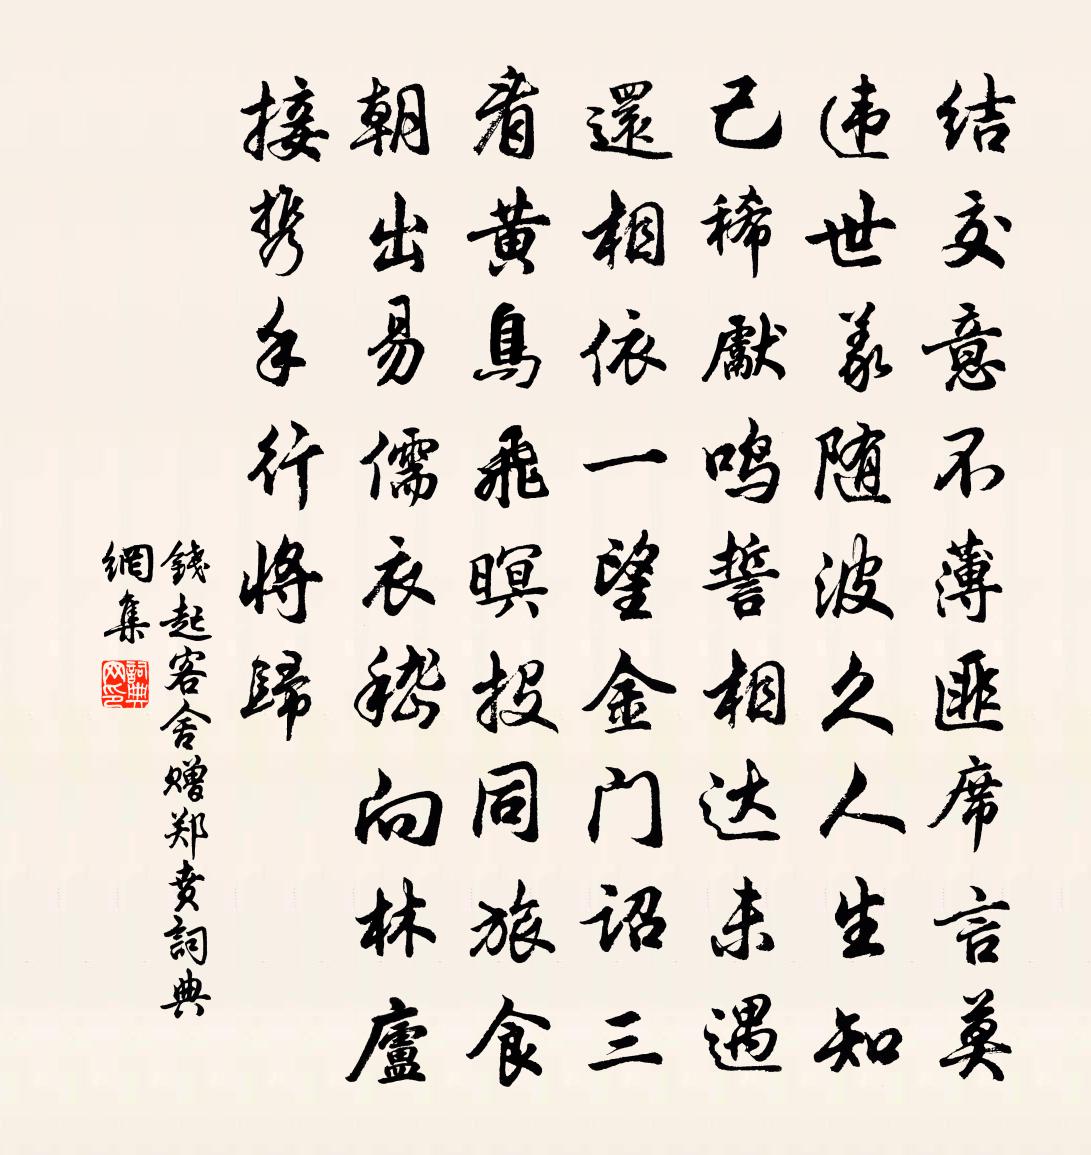 结交意不薄匪席言莫
违世义随波久人生知
己稀獻鸣誓相达未遇
還相依一望金门诏三
看黄鳥飛暝投同旅食
朝出易儒衣嵇向林廬
接携手行将歸
錢起客舍赠郑贲詞典
網集
詞典
网印